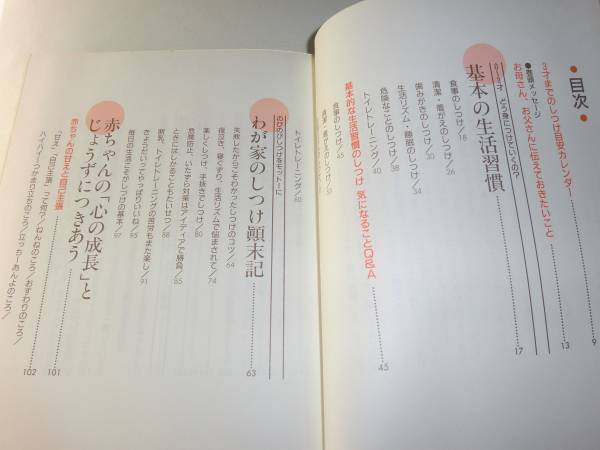 目次
3才までのしつけ目安カレンダー 9
●巻頭メッセージ
お母さん、お父さんに伝えておきたいこと 13
0〜3才 どう身につけていくの?
基本の生活習慣 17
食事のしつけ/18
清潔・着がえのしつけ/26
歯みがきのしつけ/34
生活リズム・睡眠のしつけ/38
危険なことのしつけ/38
トイレトレーニング/40
基本的な生活習慣のしつけ 気になることQ&A 45
食事のしつけ/45
清潔・着がえのしつけ/51
トイレトレーニング/60
のびのびしつけをモットーに
わが家のしつけ顚末記 63
失敗したからこそわかったしつけのコツ/64
夜泣き、寝ぐずり、生活リズムで悩まされて/74
楽しくしつけ、手抜きでしつけ/80
危険防止、いたずら対策はアイディアで勝負/85
ときにはしかることもたいせつ/88
断乳、トイレトレーニングの苦労もまた楽し/91
きょうだいってやっぱりいいね/95
毎日の生活こそがしつけの基本/97
赤ちゃんの「心の成長」と
じょうずにつきあう
赤ちゃんの甘えと自己主張 101
"甘え""自己主張"って何?/ねんねのころ/おすわりのころ/
ハイハイ〜つかまり立ちのころ/立っちーあんよのころ/ 102